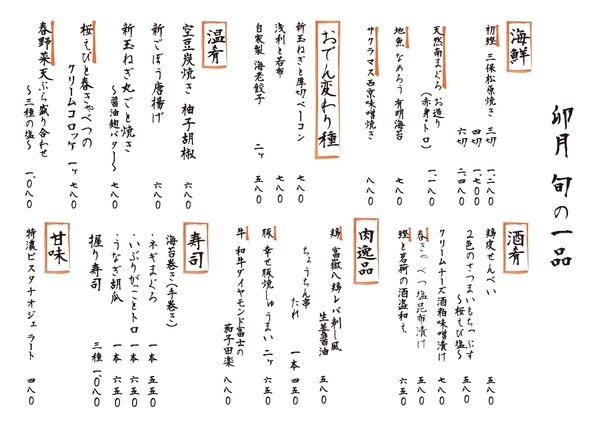 卯月 旬の一品
海鮮
初鰹 三保松原焼き 三切 一、二八〇
四切 一、七〇〇
六切 二、四八〇
天然南まぐろ お造り
(赤身・トロ) 一、一八〇
地魚 なめろう 有明海苔 七八〇
サクラマス西京味噌焼き 八八〇
おでん変わり種
新玉ねぎと厚切ベーコン 七八〇
浅利と若布 七八〇
自家製 海老餃子 二ヶ 五八〇
温肴
空豆炭焼き 柚子胡椒 六八〇
新ごぼう唐揚げ 六八〇
新玉ねぎ丸ごと焼き
〜醤油麹バター〜 七八〇
桜えびと春きゃべつの
クリームコロッケ 一ヶ 七八〇
春野菜天ぷら盛り合わせ
〜三種の塩〜 一、〇八〇
酒肴
鶏皮せんべい 五五〇
2色のさつまいもちっぷす
〜桜えび塩〜 五五〇
クリームチーズ酒粕味噌漬け 七八〇
春きゃべつ塩昆布漬け 五五〇
鰹と茗荷の酒盗和え 六五〇
肉逸品
鶏 富嶽八鶏レバ刺し風
生姜醤油 五八〇
ちょうちん串
たれ 一本 四五〇
豚 幸せ豚焼しゅうまい 二ヶ 六五〇
牛 和牛ダイヤモンド富士の
茄子田楽 八八〇
寿司
海苔巻き(手巻き)
・ネギまぐろ 一本 五五〇
・いぶりがことトロ 一本 六五〇
・うなぎ胡瓜 一本 六五〇
握り寿司 三種 一、〇八〇
甘味
特濃ピスタチオジェラート 四八〇